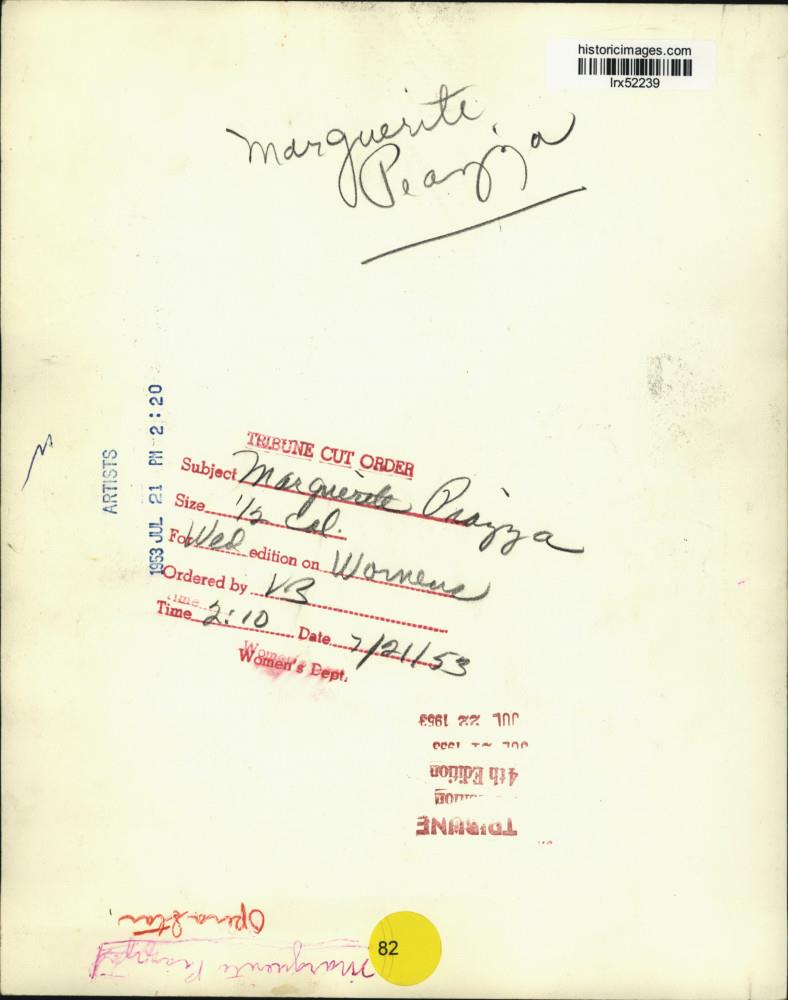 historicimages.com
lrx52239
Marguerite
Peazza
1953 JUL 21 PM 2:20
ARTISTS
TRIBUNE CUT ORDER
Subject Marguerite Piazza
Size 1/2 Col.
For Wed edition on Womens
Ordered by VB
Time
Time 2:10 Date 7/21/53
Women's Dept.
JUL 22 1953
4th Edition
TRIBUNE
Opera Star
Marguerite Piazza
82